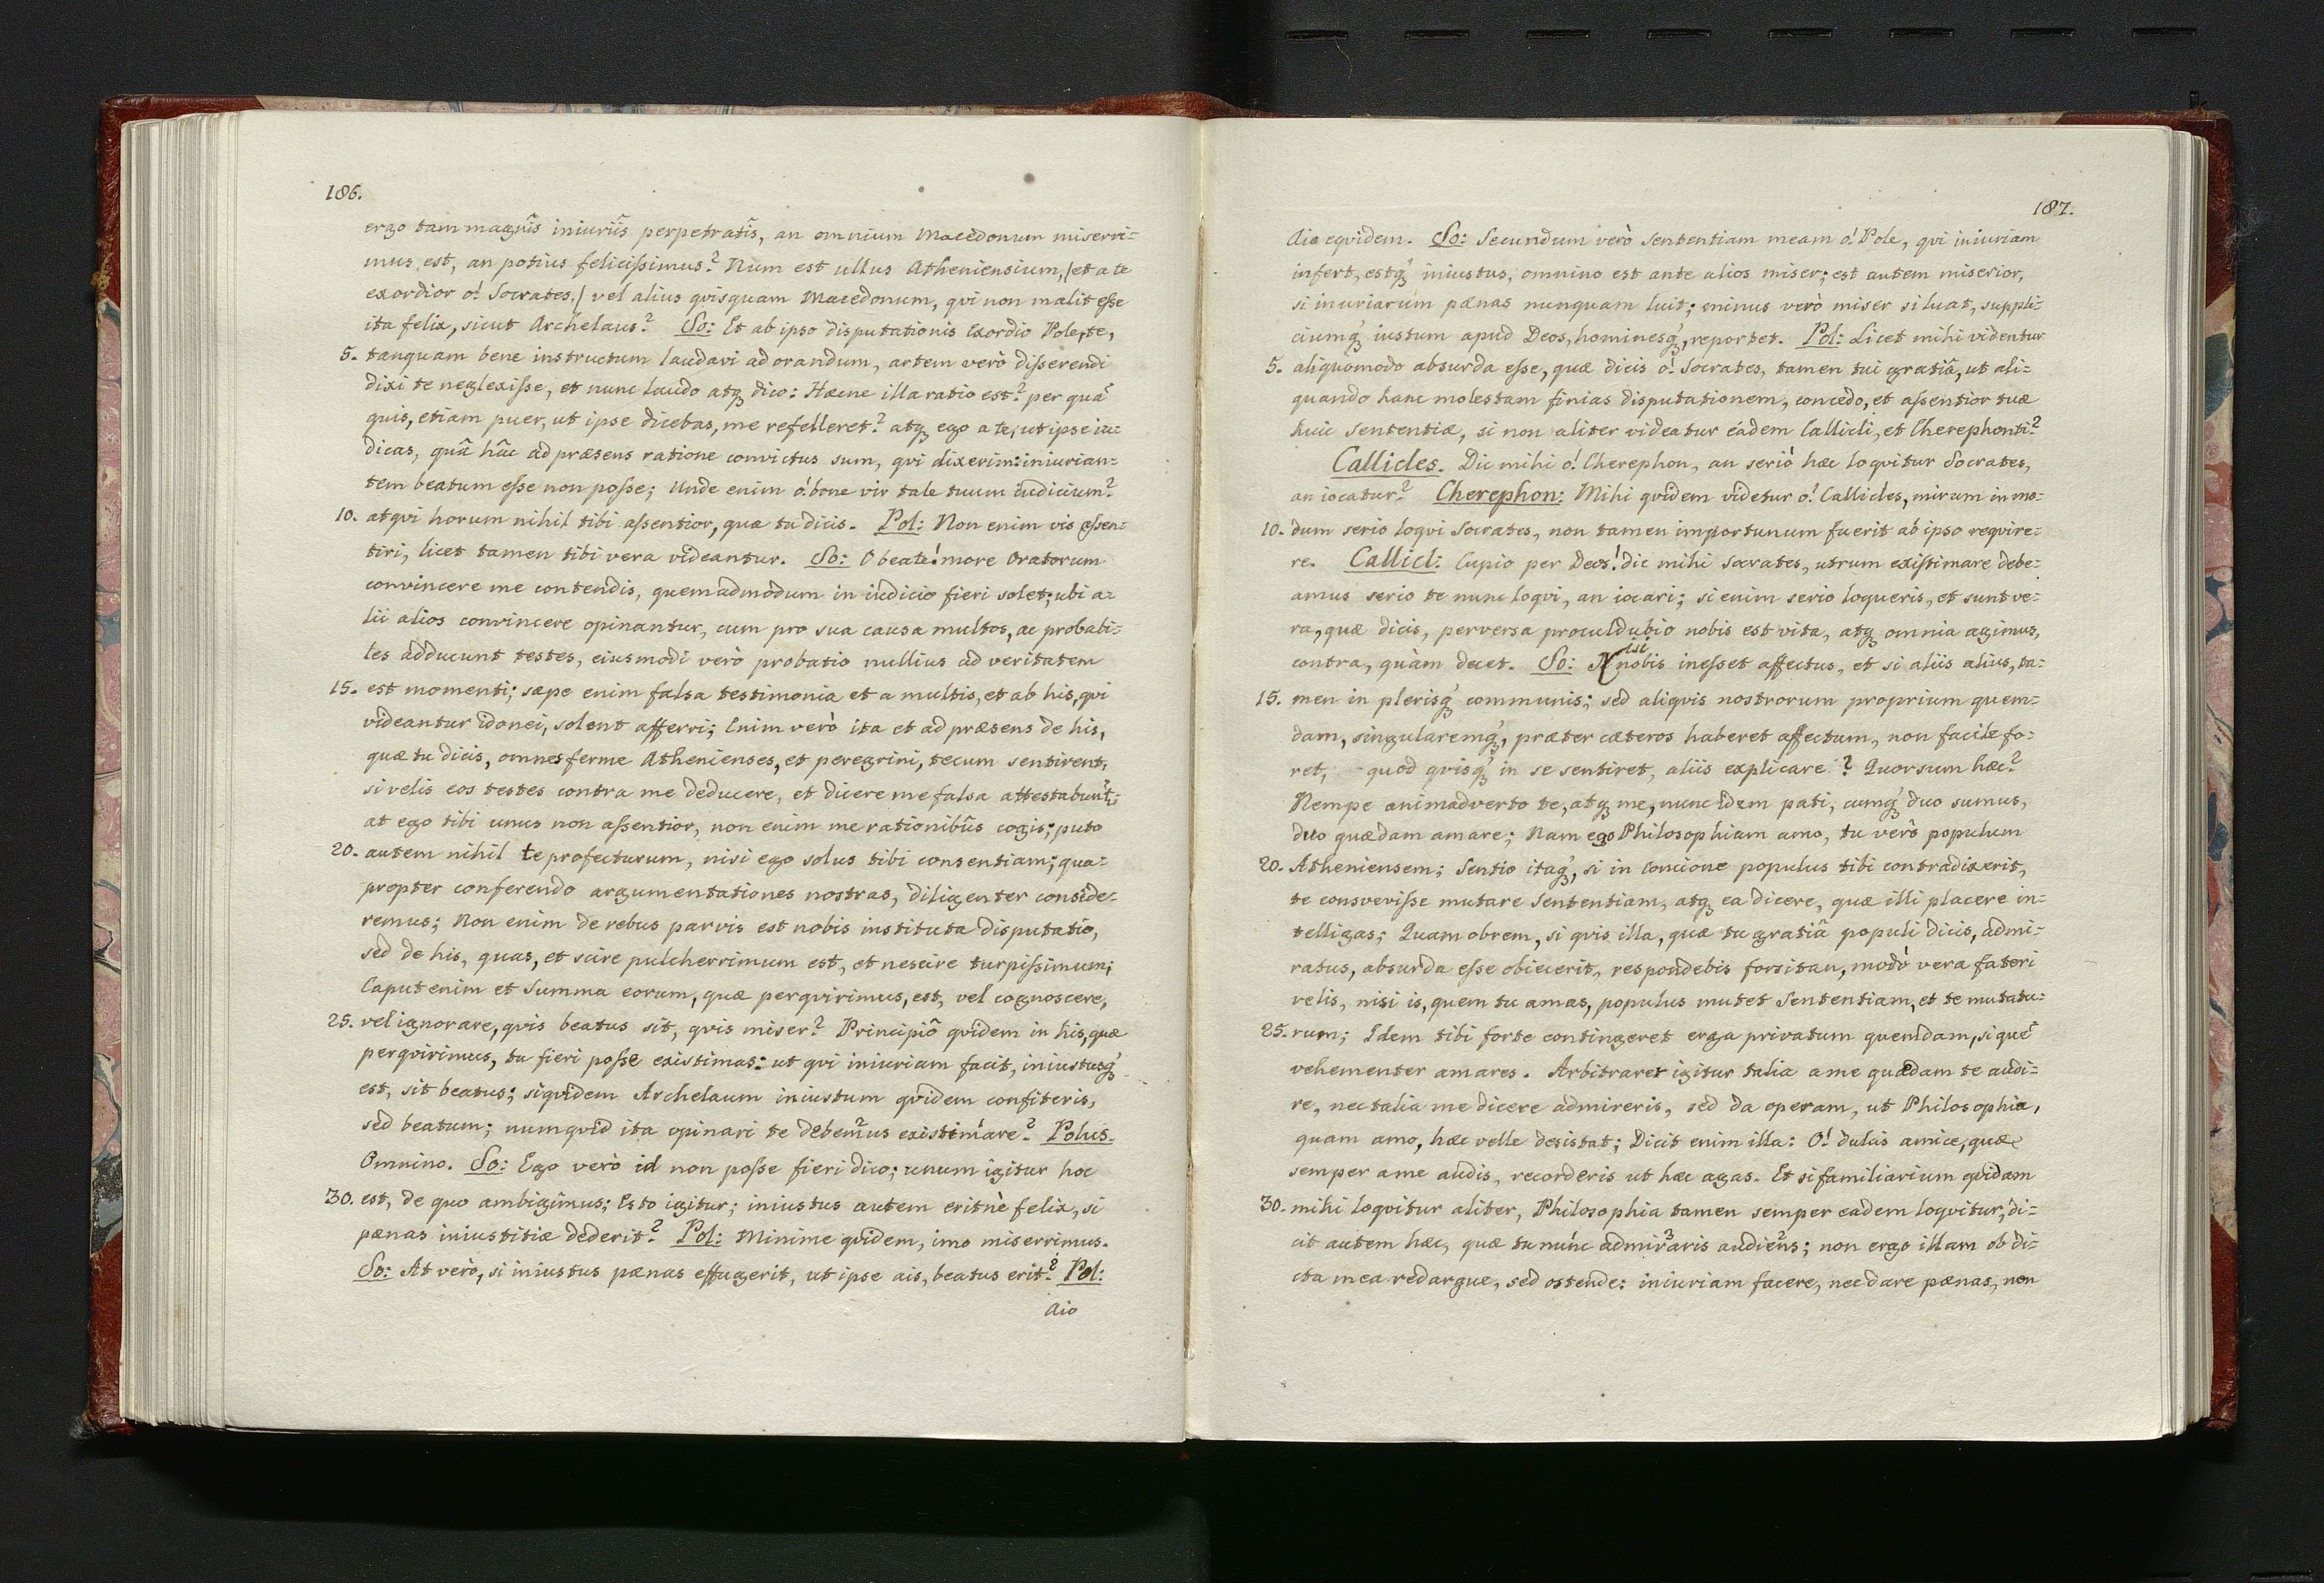 186.
ergo tam magnîs iniurîis perpetratîs, an omnium Macedonum miserri=
mus est, an potius felicissimus? Num est ullus Atheniensium,/et a te
exordior o! Socrates,/ vel alius qvisquam Macedonum, qvi non malit esse
ita felix, sicut Archelaus? So: Et ab ipso disputationis Exordio Pole, te,
5. tanquam bene instructum laudavi ad orandum, artem verò disserendi
dixi te neglexisse, et nunc laudo atq3 dico: Hæcne illa ratio est? per quâ
quis, etiam puer, ut ipse dicebas, me refelleret? atq3 ego a te, ut ipse iu=
dicas, quâ hâc ad præsens ratione convictus sum, qvi dixerim: iniurian=
tem beatum esse non posse; Unde enim ó bone vir tale tuum iudicium?
10. atqvi horum nihil tibi assentior, quæ tu dicis. Pol: Non enim vis assen=
tiri, licet tamen tibi vera videantur. So: O beate! more Oratorum
convincere me contendis, quemadmodum in iudicio fieri solet; ubi a=
lii alios convincere opinantur, cum pro sua causa multos, ac probabi=
les adducunt testes, eiusmodi verò probatio nullius ad veritatem
15. est momenti; sæpe enim falsa testimonia et a multis, et ab his, qvi
videantur idonei, solent afferri; Enim verò ita et ad præsens de his,
quæ tu dicis, omnes ferme Athenienses, et peregrini, tecum sentirent,
si velis eos testes contra me deducere, et dicere me falsa attestabunt,;
at ego tibi unus non assentior, non enim me rationibûs cogis; puto
20. autem nihil te profecturum, nisi ego solus tibi consentiam; qua=
propter conferendo argumentationes nostras, diligenter conside=
remus; Non enim de rebus parvis est nobis instituta disputatio,
sed de his, quas, et scire pulcherrimum est, et nescire turpissimum;
Caput enim et Summa eorum, quæ perqvirimus, est, vel cognoscere,
25. vel ignorare, qvis beatus sit, qvis miser? Principiô qvidem in his, quæ
perqvirimus, tu fieri posse existimas: ut qvi iniuriam facit, iniustusq3
est, sit beatus; siqvidem Archelaum iniustum qvidem confiteris,
sed beatum; numqvid ita opinari te debemus existimare? Polus.
Omnino. So: Ego verò id non posse fieri dico; unum igitur hoc
30. est, de quo ambigimus; Esto igitur; iniustus autem eritnè felix, si
pænas iniustitiæ dederit? Pol: Minime qvidem, imo miserrimus.
So: At verò, si iniustus pænas effugerit, ut ipse ais, beatus erit? Pol:
Aio
187.
Aio eqvidem. So: Secundum verò sententiam meam o! Pole, qvi iniuriam
infert, estq3 iniustus, omnino est ante alios miser; est autem miserior,
si iniuriarum pænas nunquam luit; minus verò miser si luat, suppli=
ciumq3 iustum apud Deos, hominesq3, reportet. Pol: Licet mihi videntur
5. aliquomodo absurda esse, quæ dicis o! Socrates, tamen tui gratiâ, ut ali=
quando hanc molestam finias disputationem, concedo, et assentior tuæ
huic sententiæ, si non aliter videatur éadem Callicli, et Cherephonti?
Callicles. Dic mihi o! Cherephon, an serió hæc loqvitur Socrates,
an iocatur? Cherephon: Mihi qvidem videtur o! Callicles, mirum in mo=
10. dum serio loqvi Socrates, non tamen importunum fuerit ab ipso reqvire=
re. Callicl: Cupio per Deos! dic mihi Socrates, utrum existimare debe=
amus serio te nunc loqvi, an iocari; si enim serio loqueris, et sunt ve=
ra, quæ dicis, perversa proculdubio nobis est vita, atq3 omnia agimus,
contra, quàm decet. So: Nisi nobis inesset affectus, et si aliis alius, ta=
15. men in plerisq3 communis; sed aliqvis nostrorum proprium quem=
dam, singularemq3, præter cæteros haberet affectum, non facile fo=
ret, quod qvisq3 in se sentiret, aliis explicare? Quorsum hæc?
Nempe animadverto te, atq3 me, nunc idem pati, cumq3 duo sumus,
duo quædam amare; Nam ego Philosophiam amo, tu verò populum
20. Atheniensem; Sentio itaq3, si in Concione populus tibi contradixerit,
te consvevisse mutare Sententiam, atq3 ea dicere, quæ illi placere in=
telligas; Quam obrem, si qvis illa, quæ tu gratiâ populi dicis, admi=
ratus, absurda esse obiecerit, respondebis forsitan, modò vera fateri
velis, nisi is, quem tu amas, populus mutet Sententiam, et te mutatu=
25. rum; Idem tibi forte contingeret erga privatum quemdam, si quê
vehementer amares. Arbitraret igitur talia a me quædam te audi=
re, nec talia me dicere admireris, sed da operam, ut Philosophia,
quam amo, hæc velle desistat; Dicit enim illa: O! dulcis amice, quæ
semper a me audis, recorderis ut hæc agas. Et si familiarium qvidam
30. mihi loqvitur aliter, Philosophia tamen semper eadem loqvitur, di=
cit autem hæc, quæ tu núnc admiraris audiens; non ergo illam ob di=
cta mea redargue, sed ostende: iniuriam facere, nec dare pænas, non